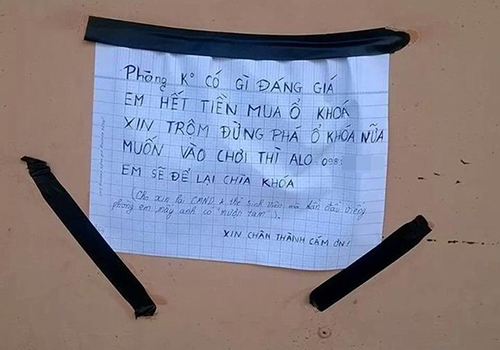 Phòng K° CÓ GÌ ĐÁNG GIÁ
EM HẾT TIỀN MUA Ổ KHOÁ
XIN TRỘM ĐỪNG PHÁ Ổ KHÓA NỮA
MUỐN VÀO CHƠI THÌ ALO 098
EM SẼ ĐỂ LẠI CHÌA KHÓA
(Cho xin lại CMND, k thẻ sinh viên, mà lần đầu viếng
phòng em này anh có "mượn tạm").
XIN CHÂN THÀNH CẢM ƠN!